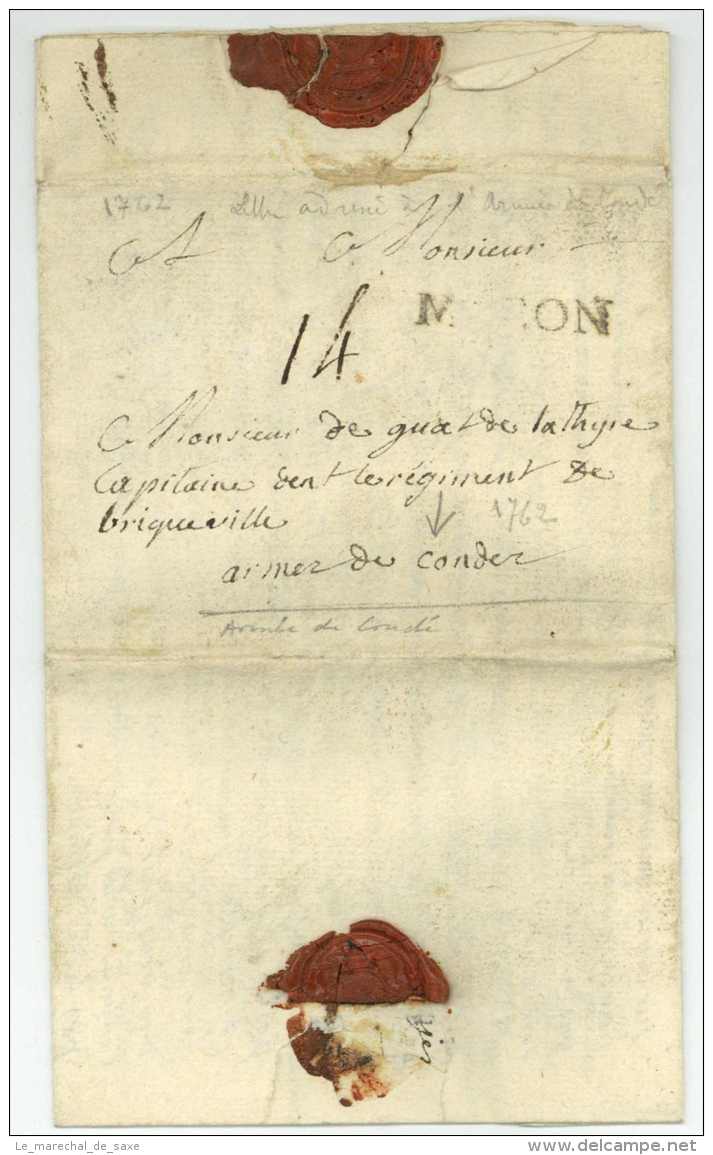 1762 Lettre adressé à l'Armée de Condé
A Monsieur
MACON
14
Monsieur de guat de lathyre
Capitaine dent le régiment de
briqueville
1762
armez de condez
Armée de Condé
Le_marechal_de_saxe
delcampe.net